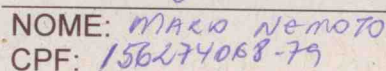 NOME: MARIO NEMOTO
CPF: 156274068-79